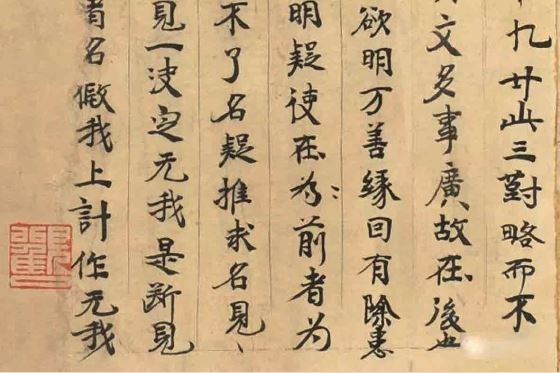 九此三對略而不
文多事廣故在後也
欲明万善緣回有除
明疑使在為〻前者為
不了名疑推求名見〻
見一決定无我是斷見
者名假我上計作无我